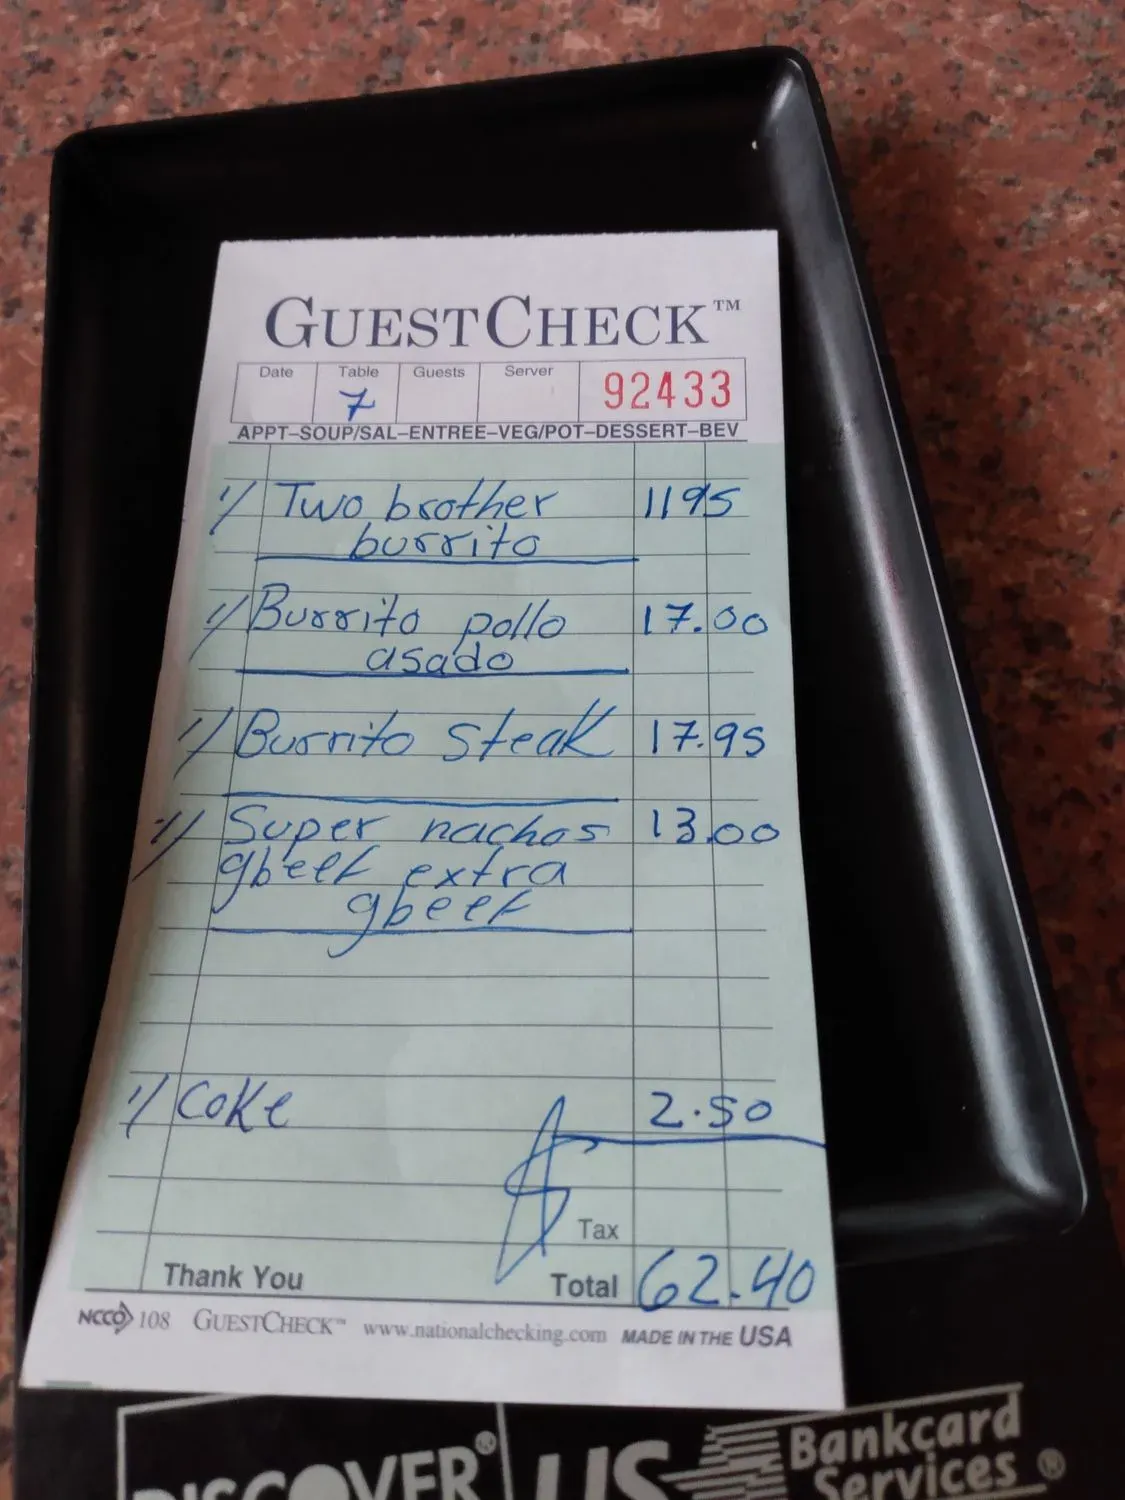 GUESTCHECK™
Date Table Guests Server
7 92433
APPT–SOUP/SAL–ENTREE–VEG/POT–DESSERT–BEV
1/ Two brother 1195
burrito
1/ Burrito pollo 17.00
asado
1/ Burrito steak 17.95
1/ Super nachos 13.00
gbeef extra
gbeef
1/ Coke 2.50
Tax
Thank You Total 62.40
NCCO 108 GUESTCHECK™ www.nationalchecking.com MADE IN THE USA
DISCOVER® US Bankcard
Services ®